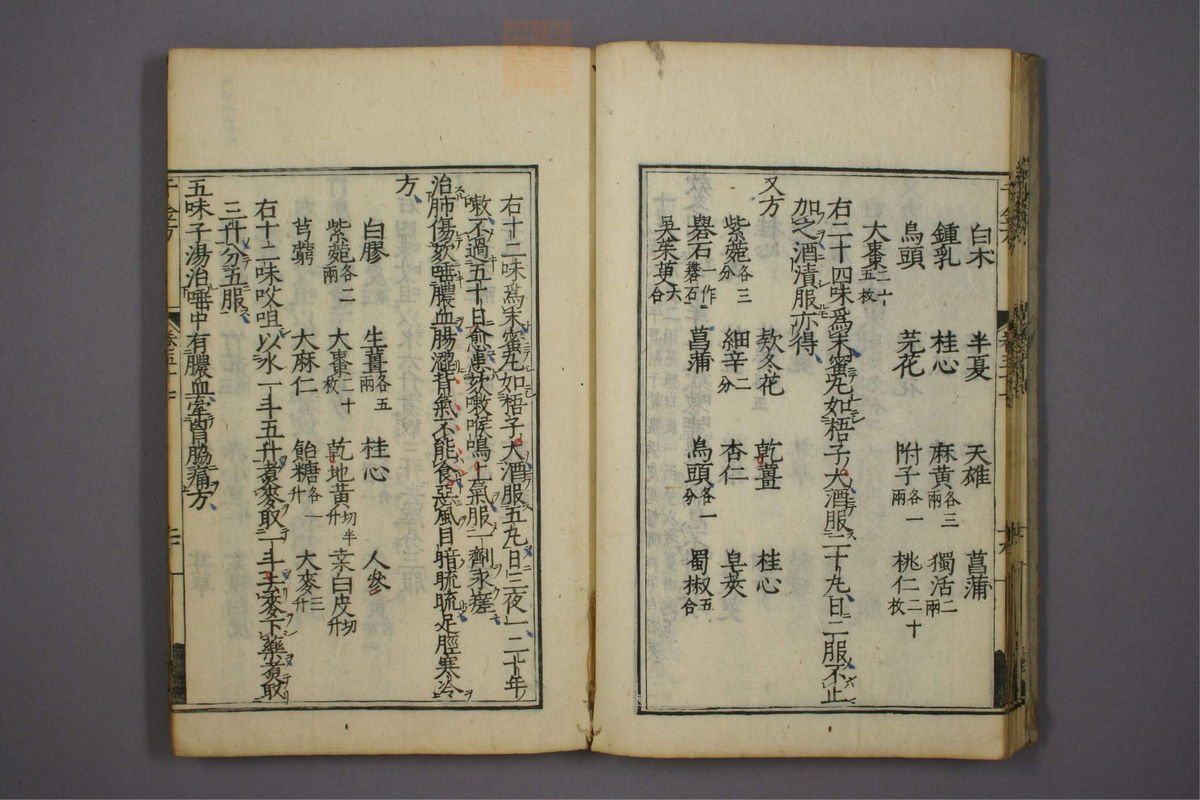 白朮 半夏 天雄 菖蒲
鍾乳 桂心 麻黄各三兩 獨活二兩
烏頭 芫花 附子各一兩 桃仁二十枚
大棗二十五枚
右二十四味爲末蜜丸如梧子大酒服二十丸日二服不止
加之酒漬服亦得
又方
紫菀各三分 款冬花 乾薑 桂心
細辛二分 杏仁 皂莢
礜石一作礬石 菖蒲 烏頭各一分 蜀椒五合
吳茱萸六合
右十二味爲末蜜丸如梧子大酒服五丸日三夜一二十年
嗽不過五十日愈患欬嗽喉鳴上氣服一劑永瘥
治肺傷欬唾膿血腸澀背氣不能食惡風目暗䀮䀮足脛寒冷
方
白膠 生薑各五兩 桂心 人參
紫菀各二兩 大棗二十枚 乾地黄切半升 桑白皮切升
芎藭 大麻仁 飴糖各一升 大麥三升
右十二味㕮咀以水一斗五升煮麥取一斗去麥下藥煮取
三升分五服
五味子湯治唾中有膿血牽胷脇痛方
千金方